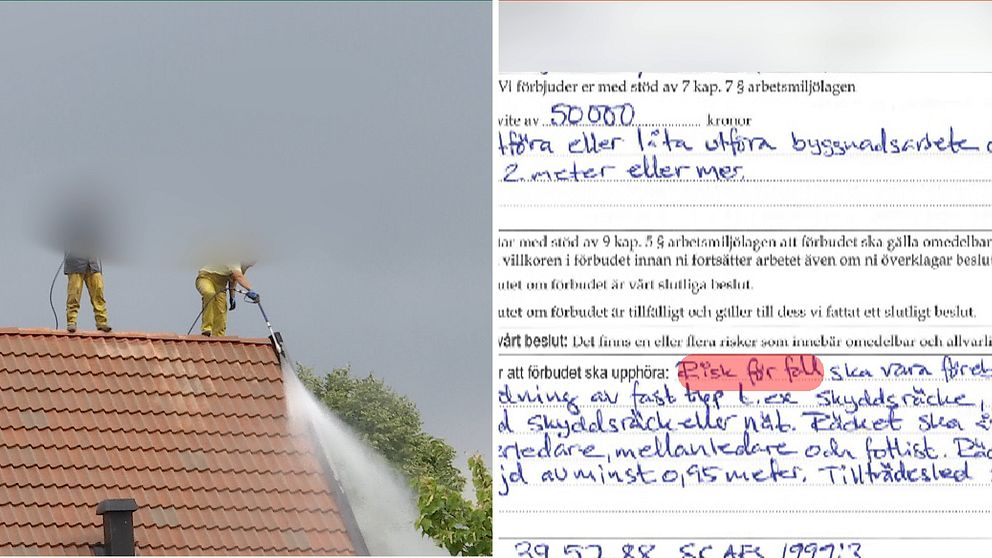 Vi förbjuder er med stöd av 7 kap. 7 § arbetsmiljölagen
vite av 50000 kronor
tföra eller låta utföra byggnadsarbete
2 meter eller mer.
tar med stöd av 9 kap. 5 § arbetsmiljölagen att förbudet ska gälla omedelbar
villkoren i förbudet innan ni fortsätter arbetet även om ni överklagar beslut
utet om förbudet är vårt slutliga beslut.
utet om förbudet är tillfälligt och gäller till dess vi fattat ett slutligt beslut.
vårt beslut: Det finns en eller flera risker som innebär omedelbar och allvarli
r att förbudet ska upphöra: Risk för fall ska vara föreb
dning av fast typ t.ex skyddsräcke,
d skyddsräck eller nät. Räcket ska
erledare, mellanledare och fotlist. Räc
jd av minst 0,95 meter. Tillträdesled
39 57 88